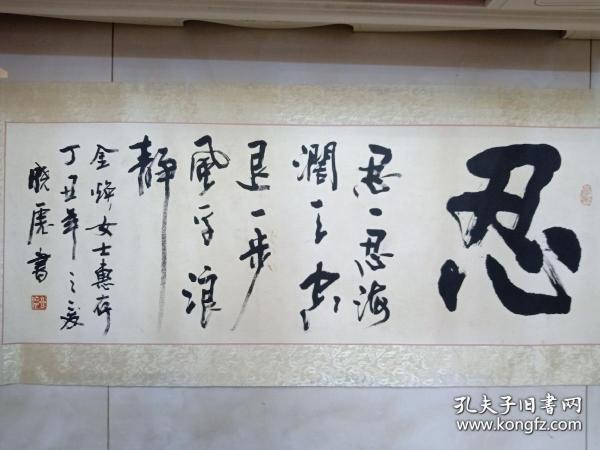 忍
忍一忍海
阔天空
退一步
風平浪
静
金焕女士惠存
丁丑年之夏
晓虎書
孔夫子旧书网
www.kongfz.com